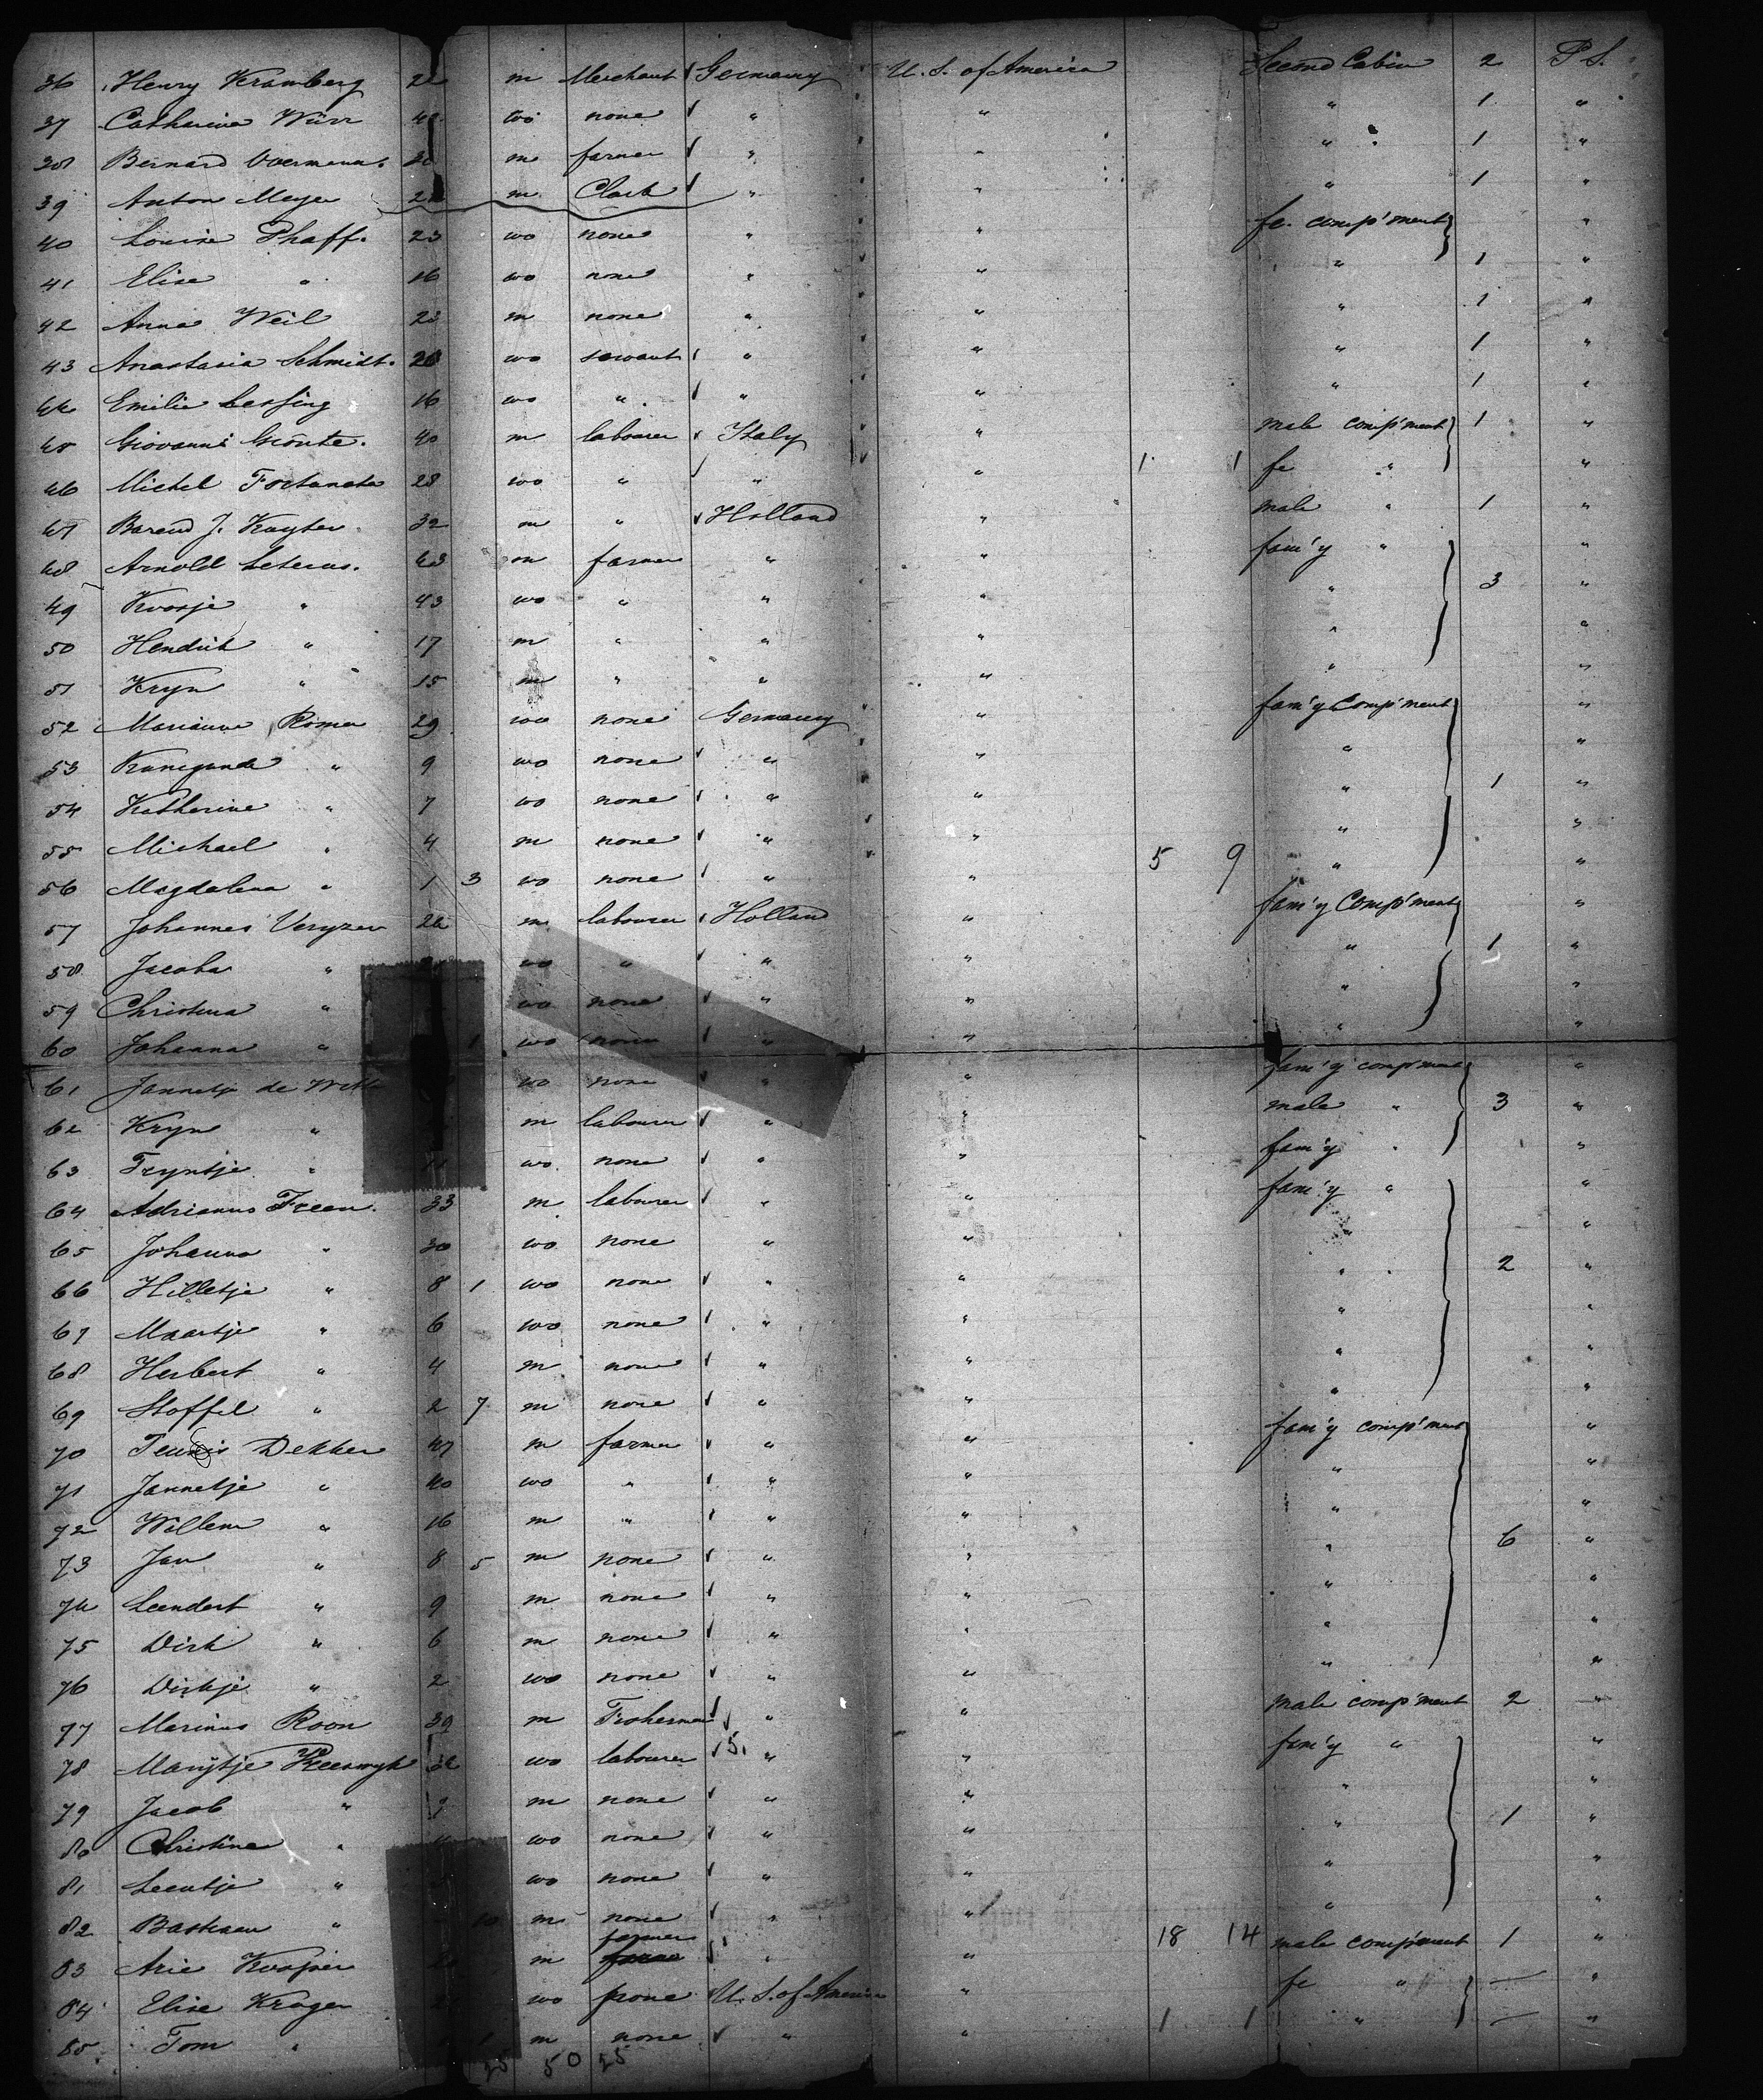 36 Henry Kramberg 22 m Merchant Germany U. S. of America Second Cabin 2 P S.
37 Catharine Würr wo none " " " 1 "
38 Bernard m farmer " " " 1 "
39 Anton Meyer m Clark " " " 1 "
40 Louise Phaff. 23 wo none " " fe. comp'ment "
41 Elise " 16 wo none " " " 1 "
42 Anna Weil 23 m none " " " 1 "
43 Anastasia Schmidt. wo servant " " " 1 "
44 Emilie Lessing 16 wo " " " " 1 "
45 Giovanni 40 m labourer Italy " male comp'ment 1 "
46 Michel Fortunato 28 wo " " " 1 1 fe " "
47 Barend J. Kuyter 32 m " Holland " male " 1 "
48 Arnold 43 m farmer " " fam'y " "
49 Koosje " 43 wo " " " " 3 "
50 Hendrik " 17 m " " " " "
51 Kryn " 15 m " " " " "
52 Marianne Roman 29 wo none Germany " fam'y Comp'ment "
53 Kunegunda " 9 wo none " " " "
54 Katherine " 7 wo none " " " 1 "
55 Michael " 4 m none " " " "
56 Magdalena " 1 3 wo none " " 5 9 " "
57 Johannes Veryzer m labourer Holland " fam'y Comp'ment "
58 Jacoba " wo " " " " 1 "
59 Christina " wo none " " " "
60 Johanna " 1 wo none " " " "
61 Jannetje de Witt wo none " " fam'y comp'ment "
62 Kryn " m labourer " " male " 3 "
63 Tryntje " 11 wo none " " fam'y " "
64 Adrianus 33 m labourer " " fam'y " "
65 Johanna " 30 wo none " " " "
66 Hilletje " 8 1 wo none " " " 2 "
67 Maartje " 6 wo none " " " "
68 Herbert " 4 m none " " " "
69 Stoffel " 2 7 m none " " " "
70 Teunis Dekker 47 m farmer " " fam'y comp'ment "
71 Jannetje " 40 wo " " " " "
72 Willem " 16 m " " " " "
73 Jan " 8 5 m none " " " 6 "
74 Leendert " 9 m none " " " "
75 Dirk " 6 m none " " " "
76 Dirkje " 2 wo none " " " "
77 Marinus Roon 39 m Fisherman " " male comp'ment 2 "
78 Marijtje wo labourer 5 " " fam'y " "
79 Jacob " m none " " " "
80 Christina " wo none " " " 1 "
81 Leentje " wo none " " " "
82 Bastiaan " 10 m none " " " "
83 Arie m farmer " " 18 14 male comp'ment 1 "
84 Elise Kruger wo none U. S. of America " fe " — "
85 Tom " 1 m none " " 1 1 " — "
25 50 25